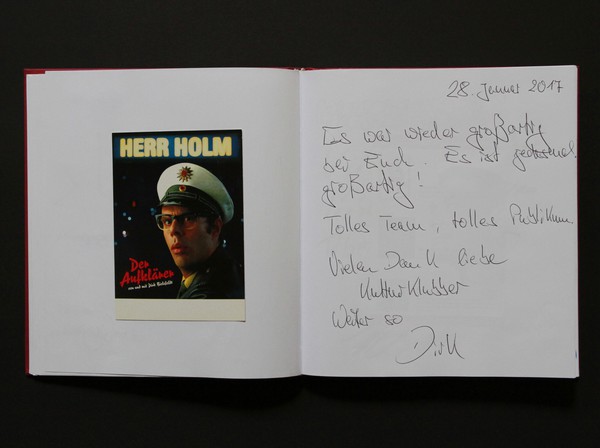 HERR HOLM
Der
Aufklärer
von und mit Dirk Bielefeldt
28. Januar 2017
Es war wieder großartig
bei Euch. Es ist jedesmal
großartig!
Tolles Team, tolles Publikum.
Vielen Dank liebe
KulturKlubber
Weiter so
Dirk